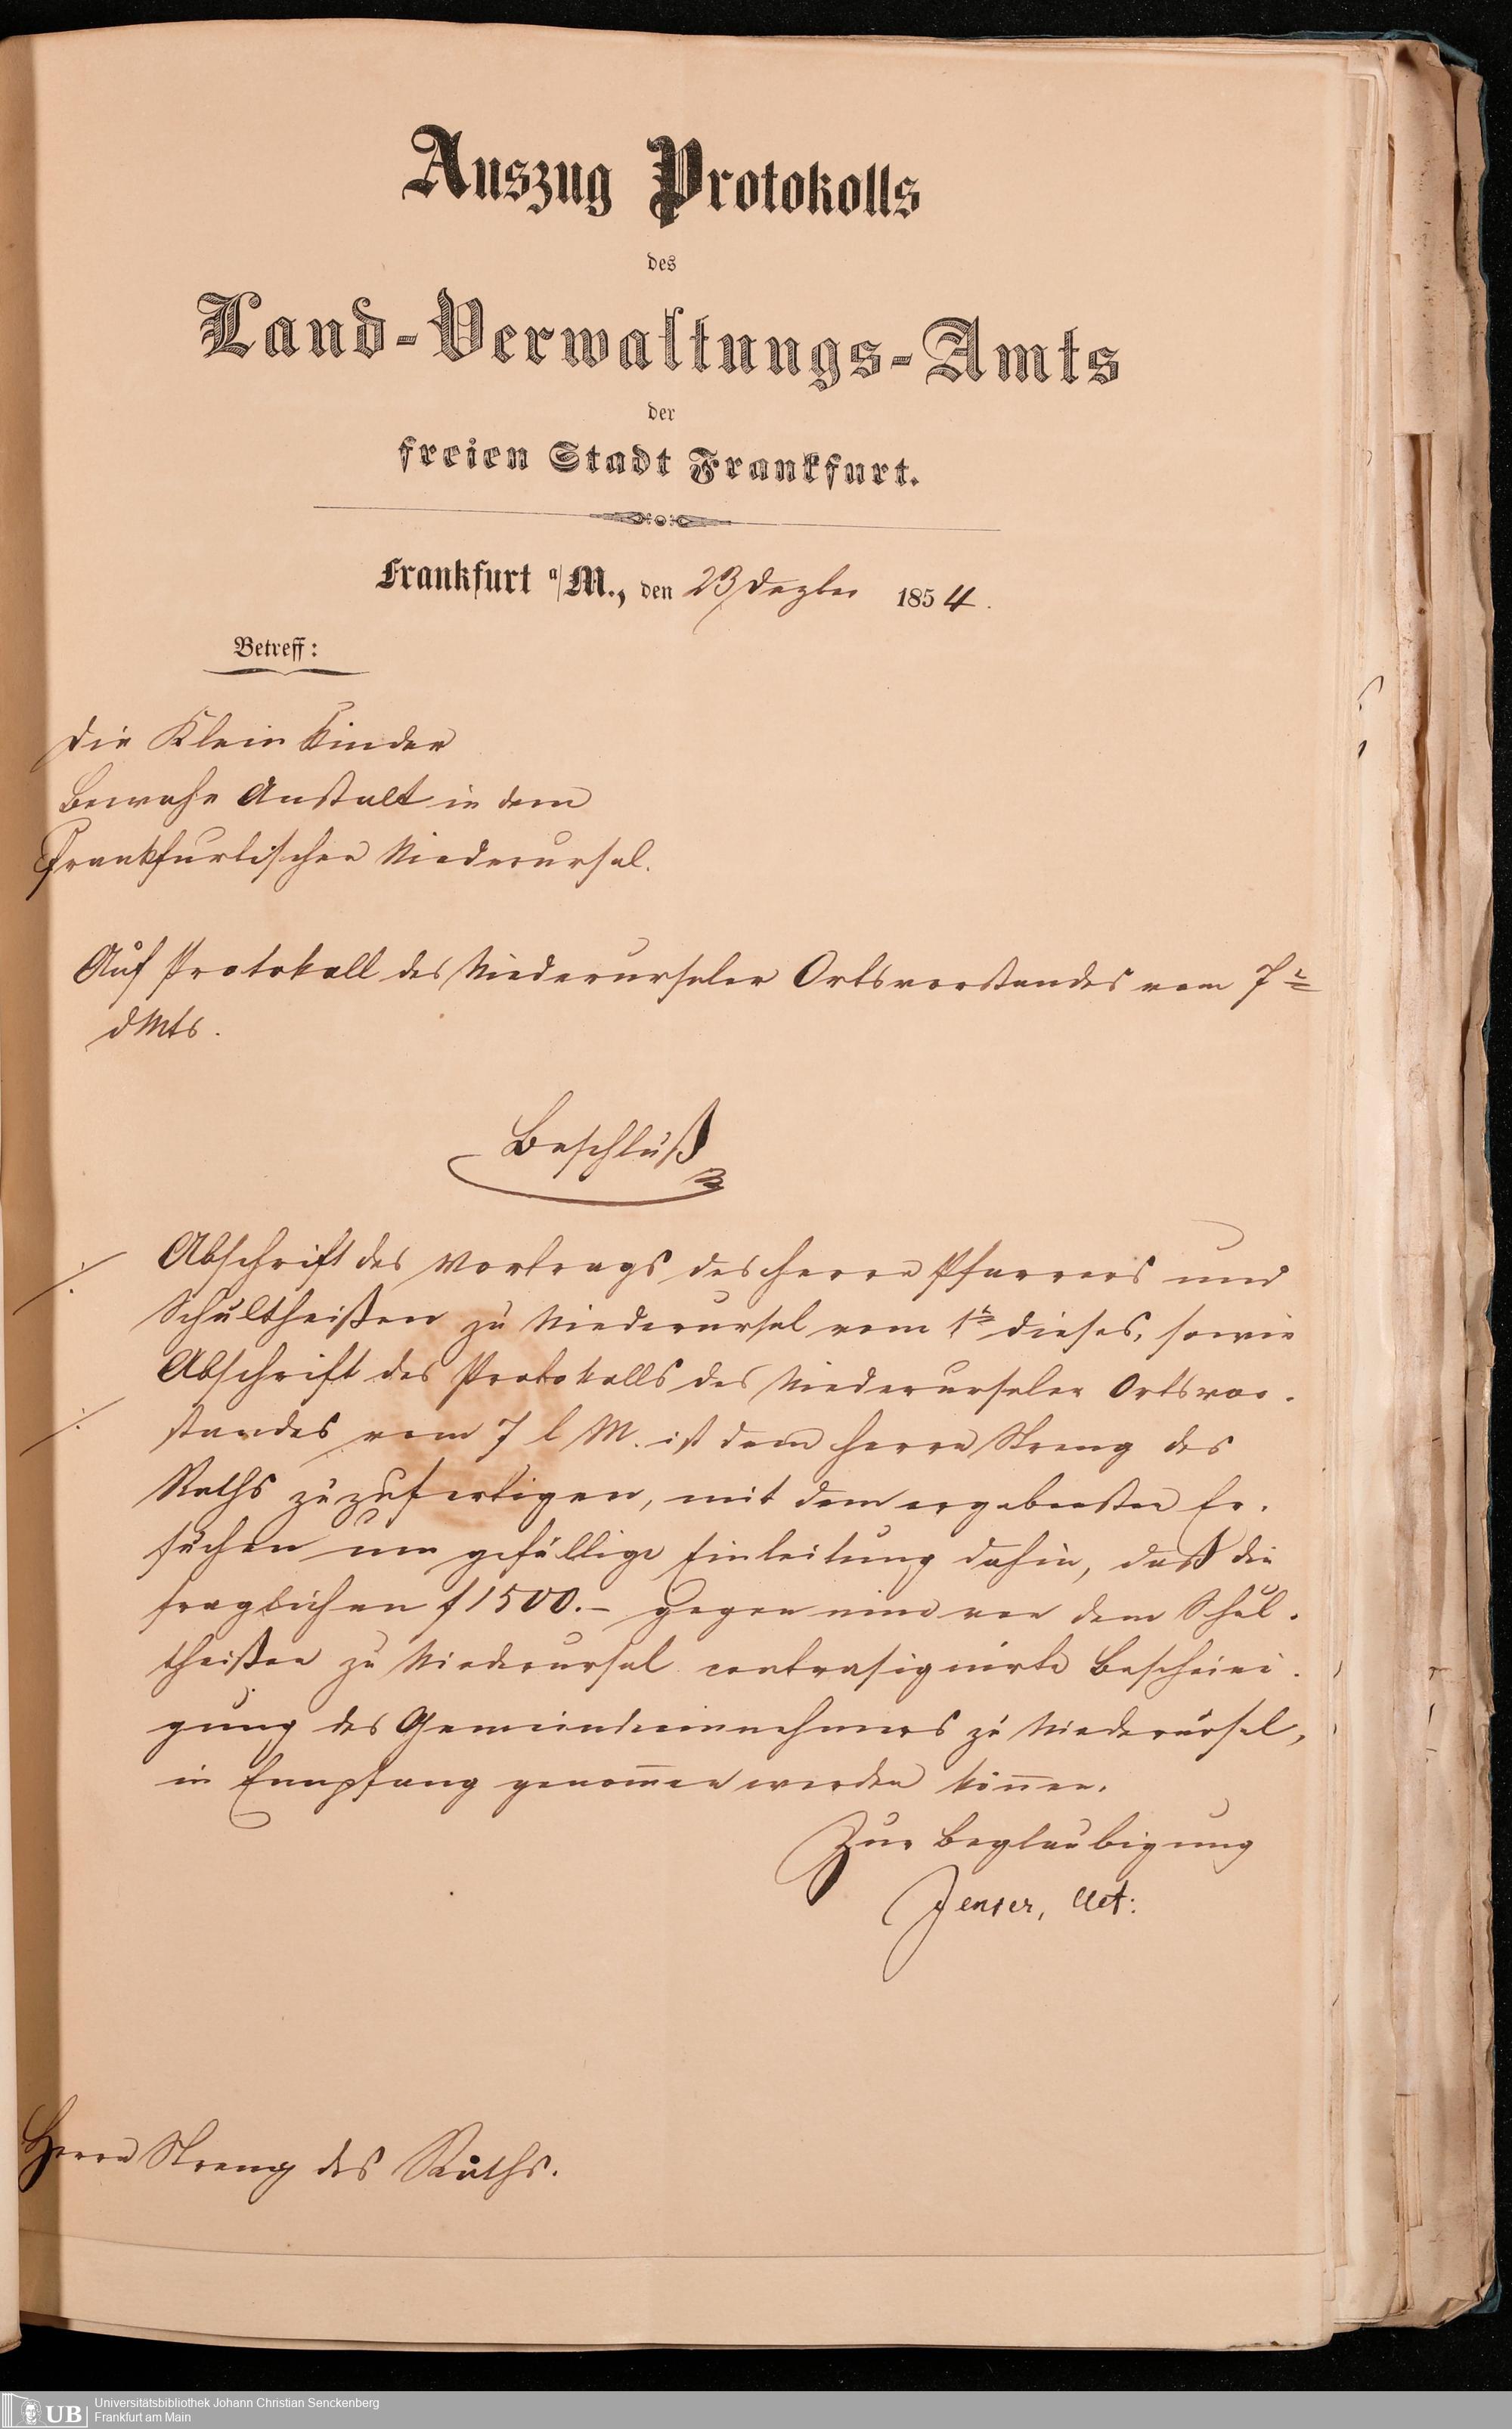 Auszug Protokolls
des
Land-Verwaltungs-Amts
der
freien Stadt Frankfurt.
Frankfurt a/M., den 23 Dezbr 1854.
Betreff:
die Klein Kinder
Bewahr Anstalt in dem
Frankfurtischen Niederursel.
Auf Protokoll des Niederurseler Ortsvorstandes vom 7n
d Mts.
Beschluß
Abschrift des Vortrags des Herrn Pfarrers und
Schultheißen zu Niederursel vom 1n dieses, sowie
Abschrift des Protokolls des Niederurseler Ortsvor-
standes vom 7 l M. ist dem Herrn Streng des
Raths zuzufertigen, mit dem ergebensten Er-
suchen um gefällige Einleitung dahin, daß die
fraglichen f 1500.– gegen eine von dem Schul-
theißen zu Niederursel contrasignirte Bescheini-
gung des Gemeindeeinnehmers zu Niederursel,
in Empfang genommen werden können.
Zur Beglaubigung
Act:
Herrn Streng des Raths.
UB
Universitätsbibliothek Johann Christian Senckenberg
Frankfurt am Main